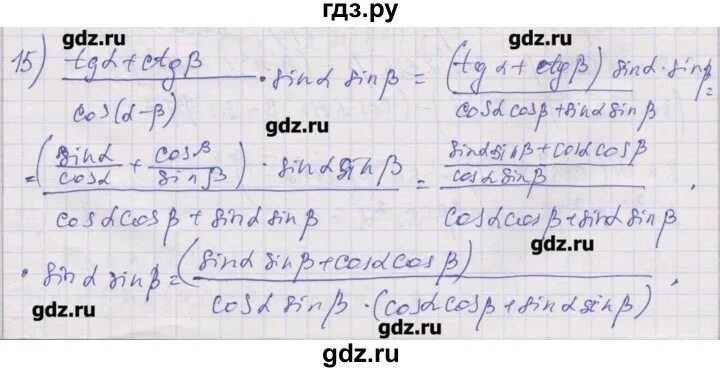 гдз.ру
gdz.ru gdz.ru
15) (tgα + ctgβ)/(cos(α-β)) · sinα sinβ = ((tgα + ctgβ) sinα · sinβ)/(cosα cosβ + sinα sinβ) =
gdz.ru
= ((sinα/cosα + cosβ/sinβ) · sinα sinβ)/(cosα cosβ + sinα sinβ) = ((sinα sinβ + cosα cosβ)/(cosα sinβ))/(cosα cosβ + sinα sinβ) ·
gdz.ru
· sinα sinβ = (sinα sinβ + cosα cosβ)/(cosα sinβ · (cosα cosβ + sinα sinβ)) ·
gdz.ru
gdz.ru
gdz.ru